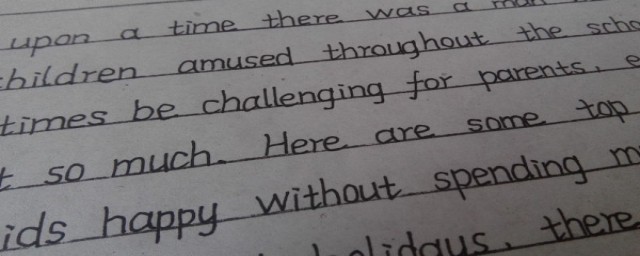 upon a time there was a
children amused throughout the
times be challenging for parents.
so much. Here are some top
happy without spending
there